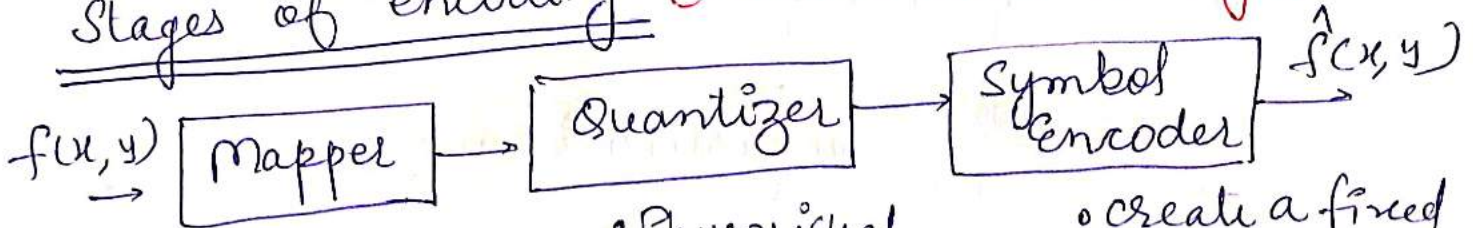 Stages of encoding
f(x, y) Mapper Quantizer Symbol Encoder f̂(x, y)
• create a fixed